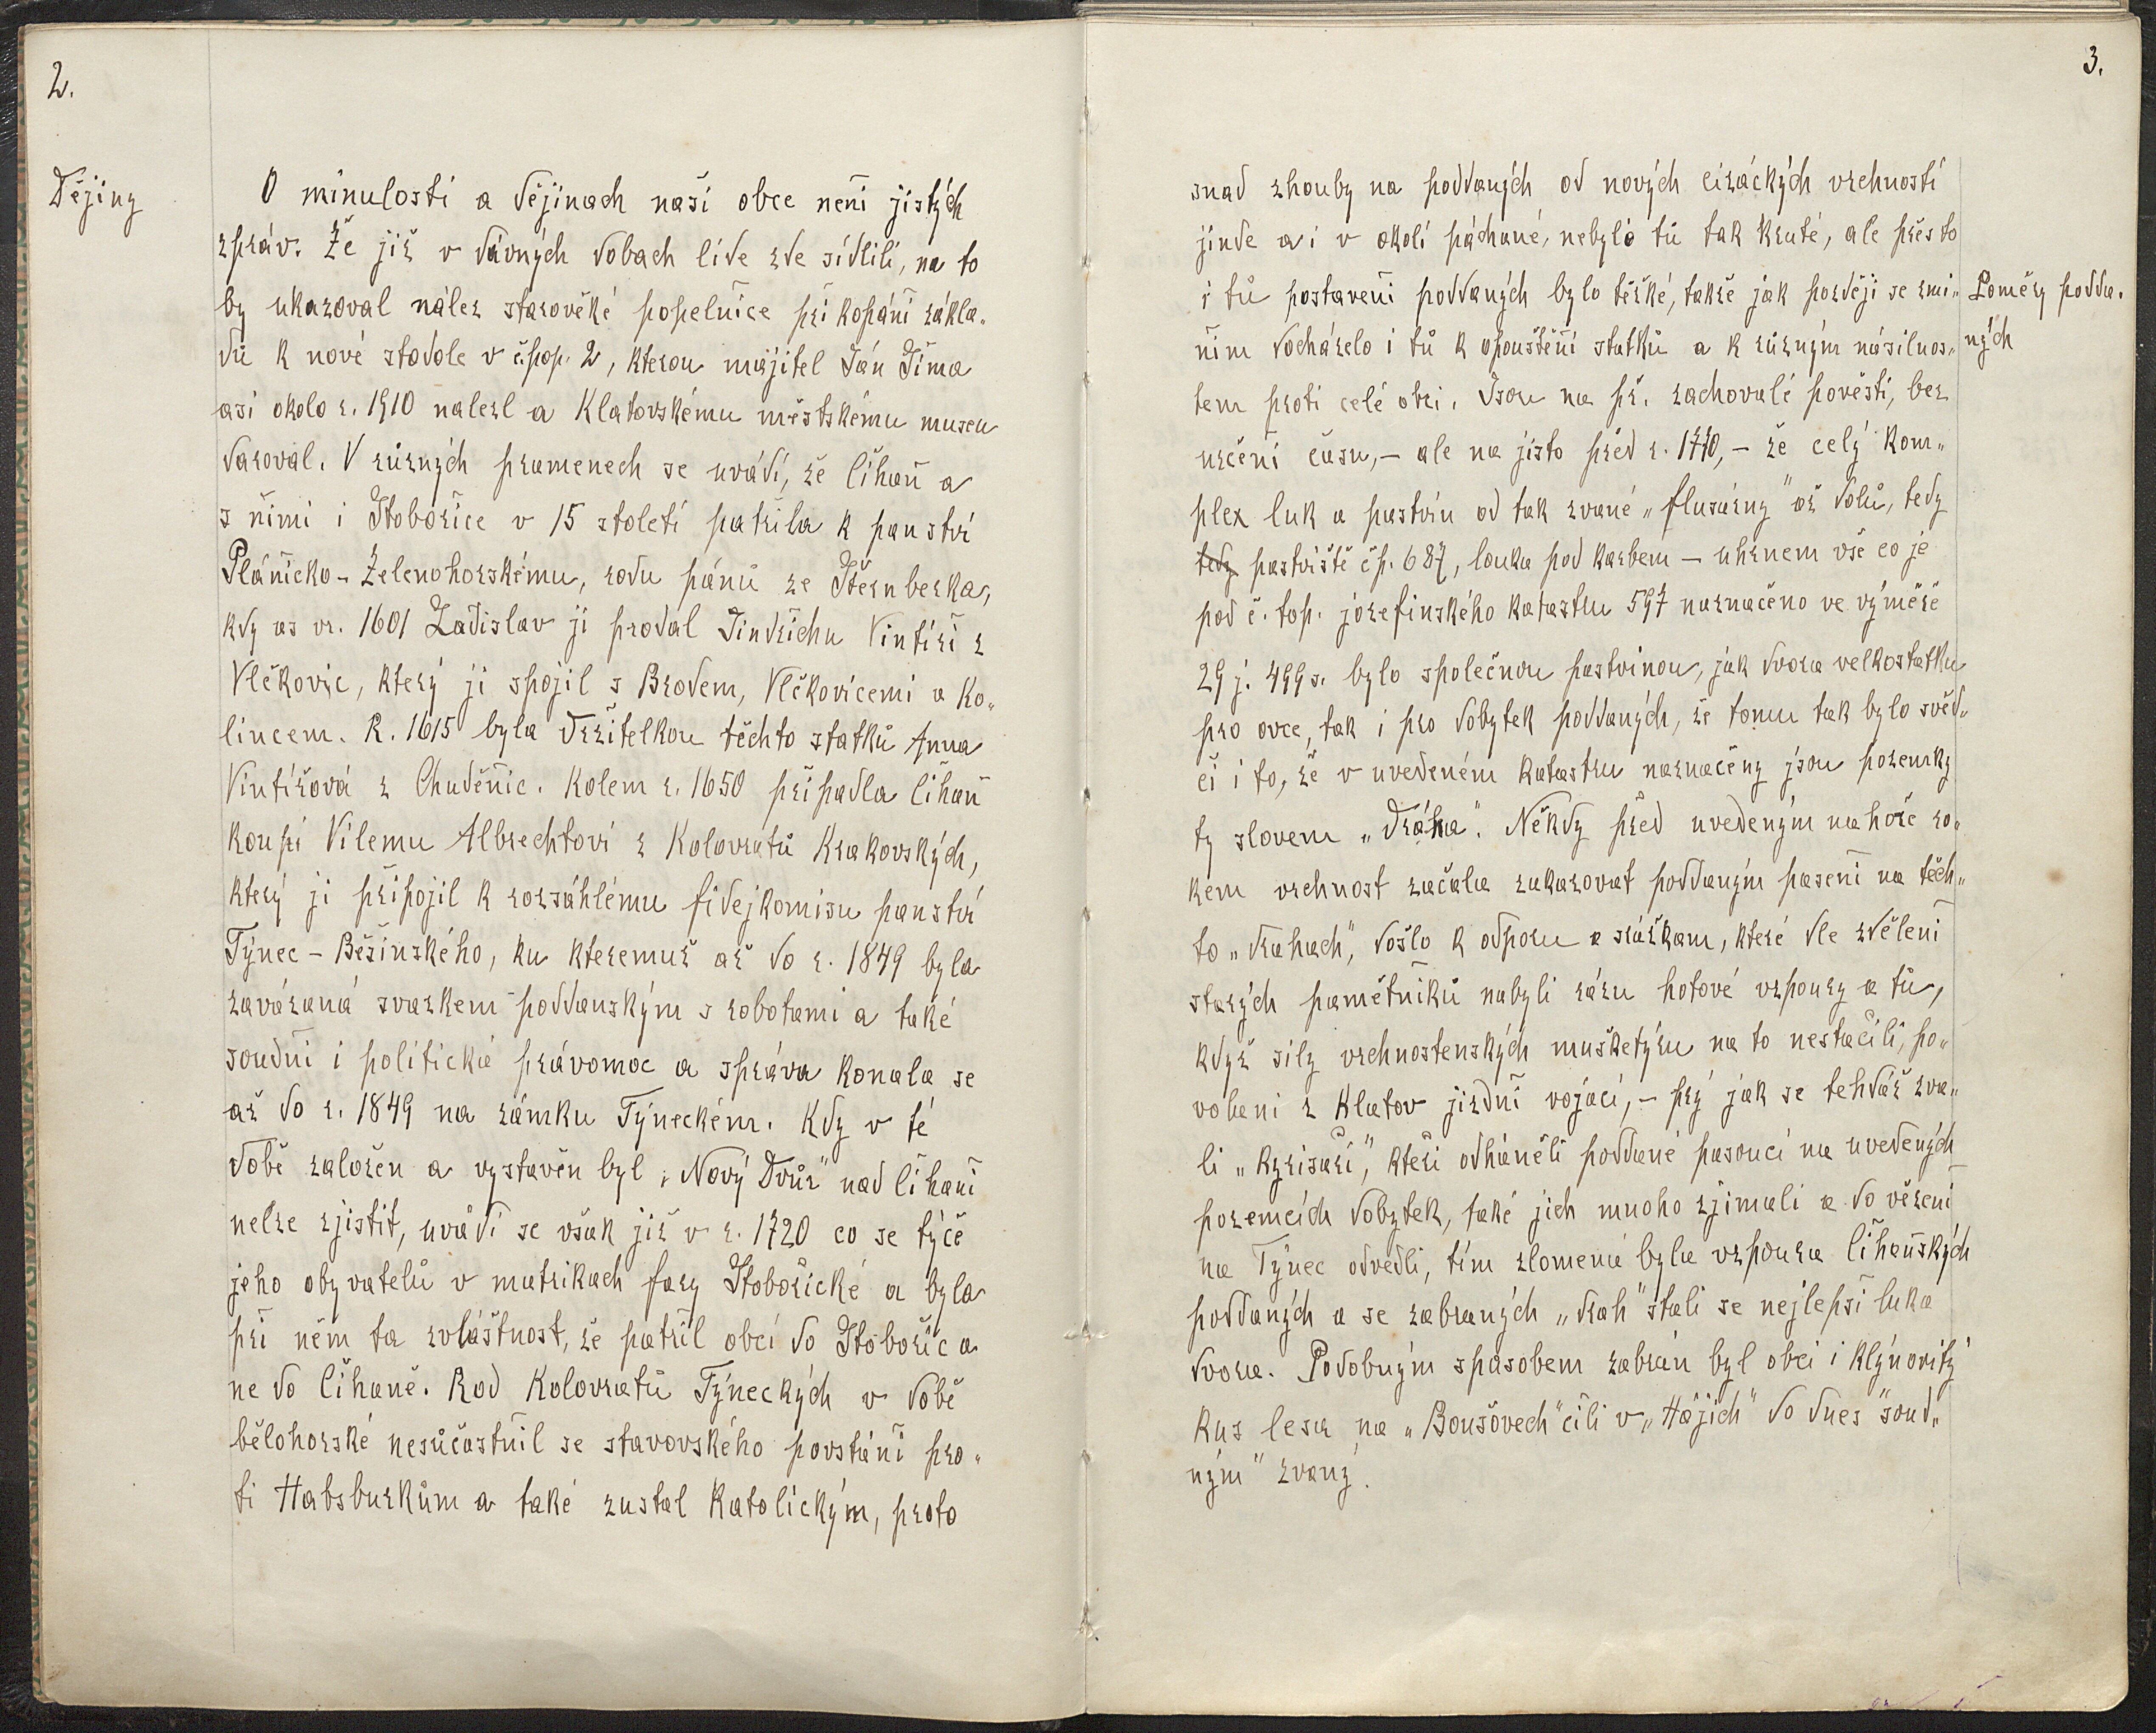 2.
Dějiny
O minulosti a dějinach naší obce není jistých
zpráv. Že již v dávných dobach lide zde sídlili, na to
by ukazoval nález starověké popelnice při kopání zákla„
dů k nové stodole v č.pop. 2, kterou majitel Ján Šíma
asi okolo r. 1910 nalezl a Klatovskému městskému museu
daroval. V různých pramenech se uvádí, že Číhaň a
s ními i Stobořice v 15 století patřila k panství
Plánicko - Zelenohorskému, rodu pánů ze Šternberka,
kdy as vr. 1601 Ladislav ji prodal Jindřichu Vintíři z
Vlčkovic, který ji spojil s Brodem, Vlčkovicemi a Ko„
lincem. R. 1615 byla držitelkou těchto statků Anna
Vintířová z Chuděnic. Kolem r. 1650 připadla Číhaň
koupí Vilemu Albrechtovi z Kolovratů Krakovských,
který ji připojil k rozsáhlému fidejkomisu panství
Týnec - Běšinského, ku kteremuž až do r. 1849 byla
zavázaná svazkem poddanským s robotami a také
soudní i politická právomoc a správa konala se
až do r. 1849 na zámku Týneckém. Kdy v té
době založen a vystavěn byl „Nový Dvůr" nad Číhaní
nelze zjistit, uvádí se však již v r. 1720 co se týče
jeho obyvatelů v matrikach fary Stobořické a byla
při něm ta zvláštnost, že patřil obcí do Stobořic a
ne do Číhaně. Rod Kolovratů Týneckých v době
bělohorské nesúčastnil se stavovského povstání pro„
ti Habsburkům a také zustal katolickým, proto
3.
snad zhouby na poddaných od nových cizáckých vrchností
jinde a i v okolí páchané, nebylo tů tak kruté, ale přes to
i tů postavení poddaných bylo těžké, takže jak později se zmi„
ním docházelo i tů k opouštění statků a k různým násilnos„
tem proti celé obci. Jsou na př. zachovalé pověsti, bez
určení času, - ale na jisto před r. 1770, - že celý kom„
plex luk a pastvin od tak zvané „flusárny" až dolů, tedy
tedy pastviště čp. 687, louka pod karbem - uhrnem vše co je
pod č. top. jozefinského katastru 597 naznačeno ve výměře
29 j. 499 s. bylo společnou pastvinou, jak dvora velkostatku
pro ovce, tak i pro dobytek poddaných, že tomu tak bylo svěd„
čí i to, že v uvedeném katastru naznačeny jsou pozemky
ty slovem „Dráha". Někdy před uvedeným na hoře ro„
kem vrchnost začala zakazovat poddaným pasení na těch„
to „drahach", došlo k odporu a srážkam, které dle zdělení
starých pamětníků nabyli rázu hotové vzpoury a tů,
když sily vrchnostenských mušketýru na to nestačili, po„
voláni z Klatov jizdní vojáci, - prý jak se tehdáž zva„
li „kyrisaři", kteří odháněli poddané pasoucí na uvedených
pozemcích dobytek, také jich mnoho zjimali a do vězení
na Týnec odvedli, tím zlomená byla vzpoura Číhaňských
poddaných a se zabraných „drah" stali se nejlepší luka
dvora. Podobným spůsobem zabrán byl obci i klýnovitý
kus lesa na „Boušovech" čili v „Hájích" do dnes "soud„
ným" zvaný.
Poměry podda„
ných